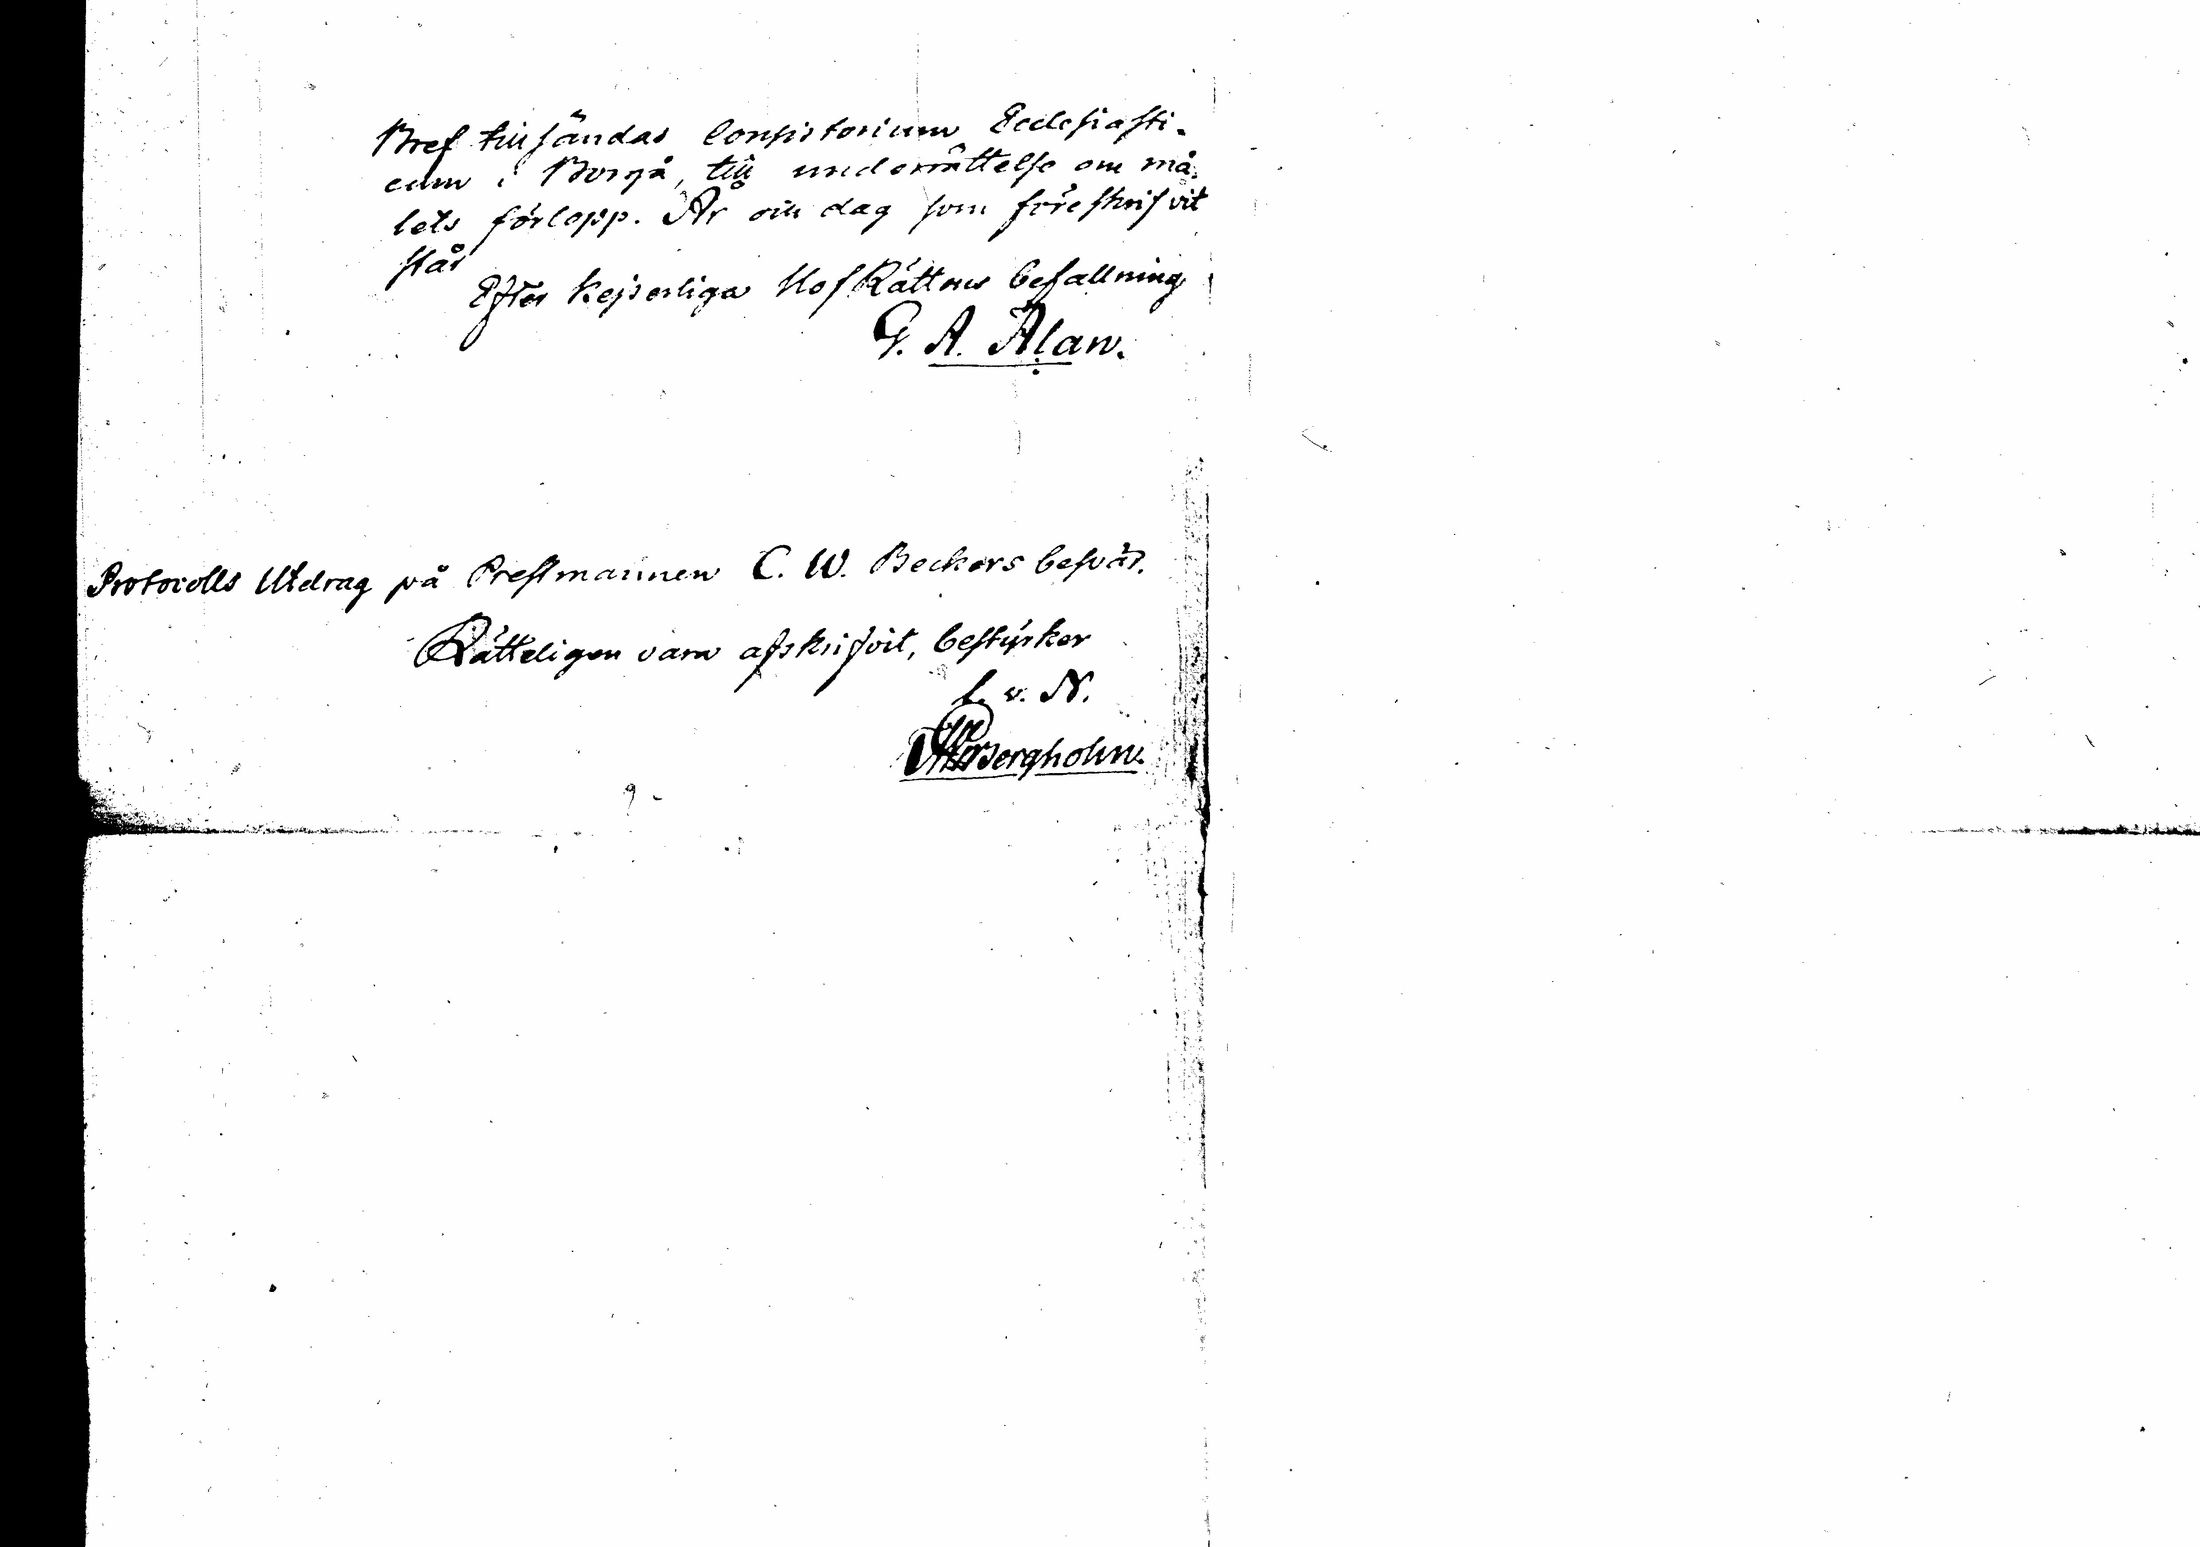 Bref tillsändas Consistorium Ecclesiasti-
cum i Borgå, till underrättelse om må-
lets förlopp. År och dag som föreskrifvit
står
Efter Kejserliga HofRättens befallning
G. A. Alan.
Protocolls Utdrag på Prestmannen C. W. Beckers besvär.
Rätteligen vara afskrifvit, bestyrker
L. v. N.